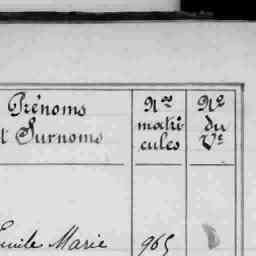 Prénoms
et Surnoms
Nos
matri
cules
No
du
Vt
Emile Marie
965